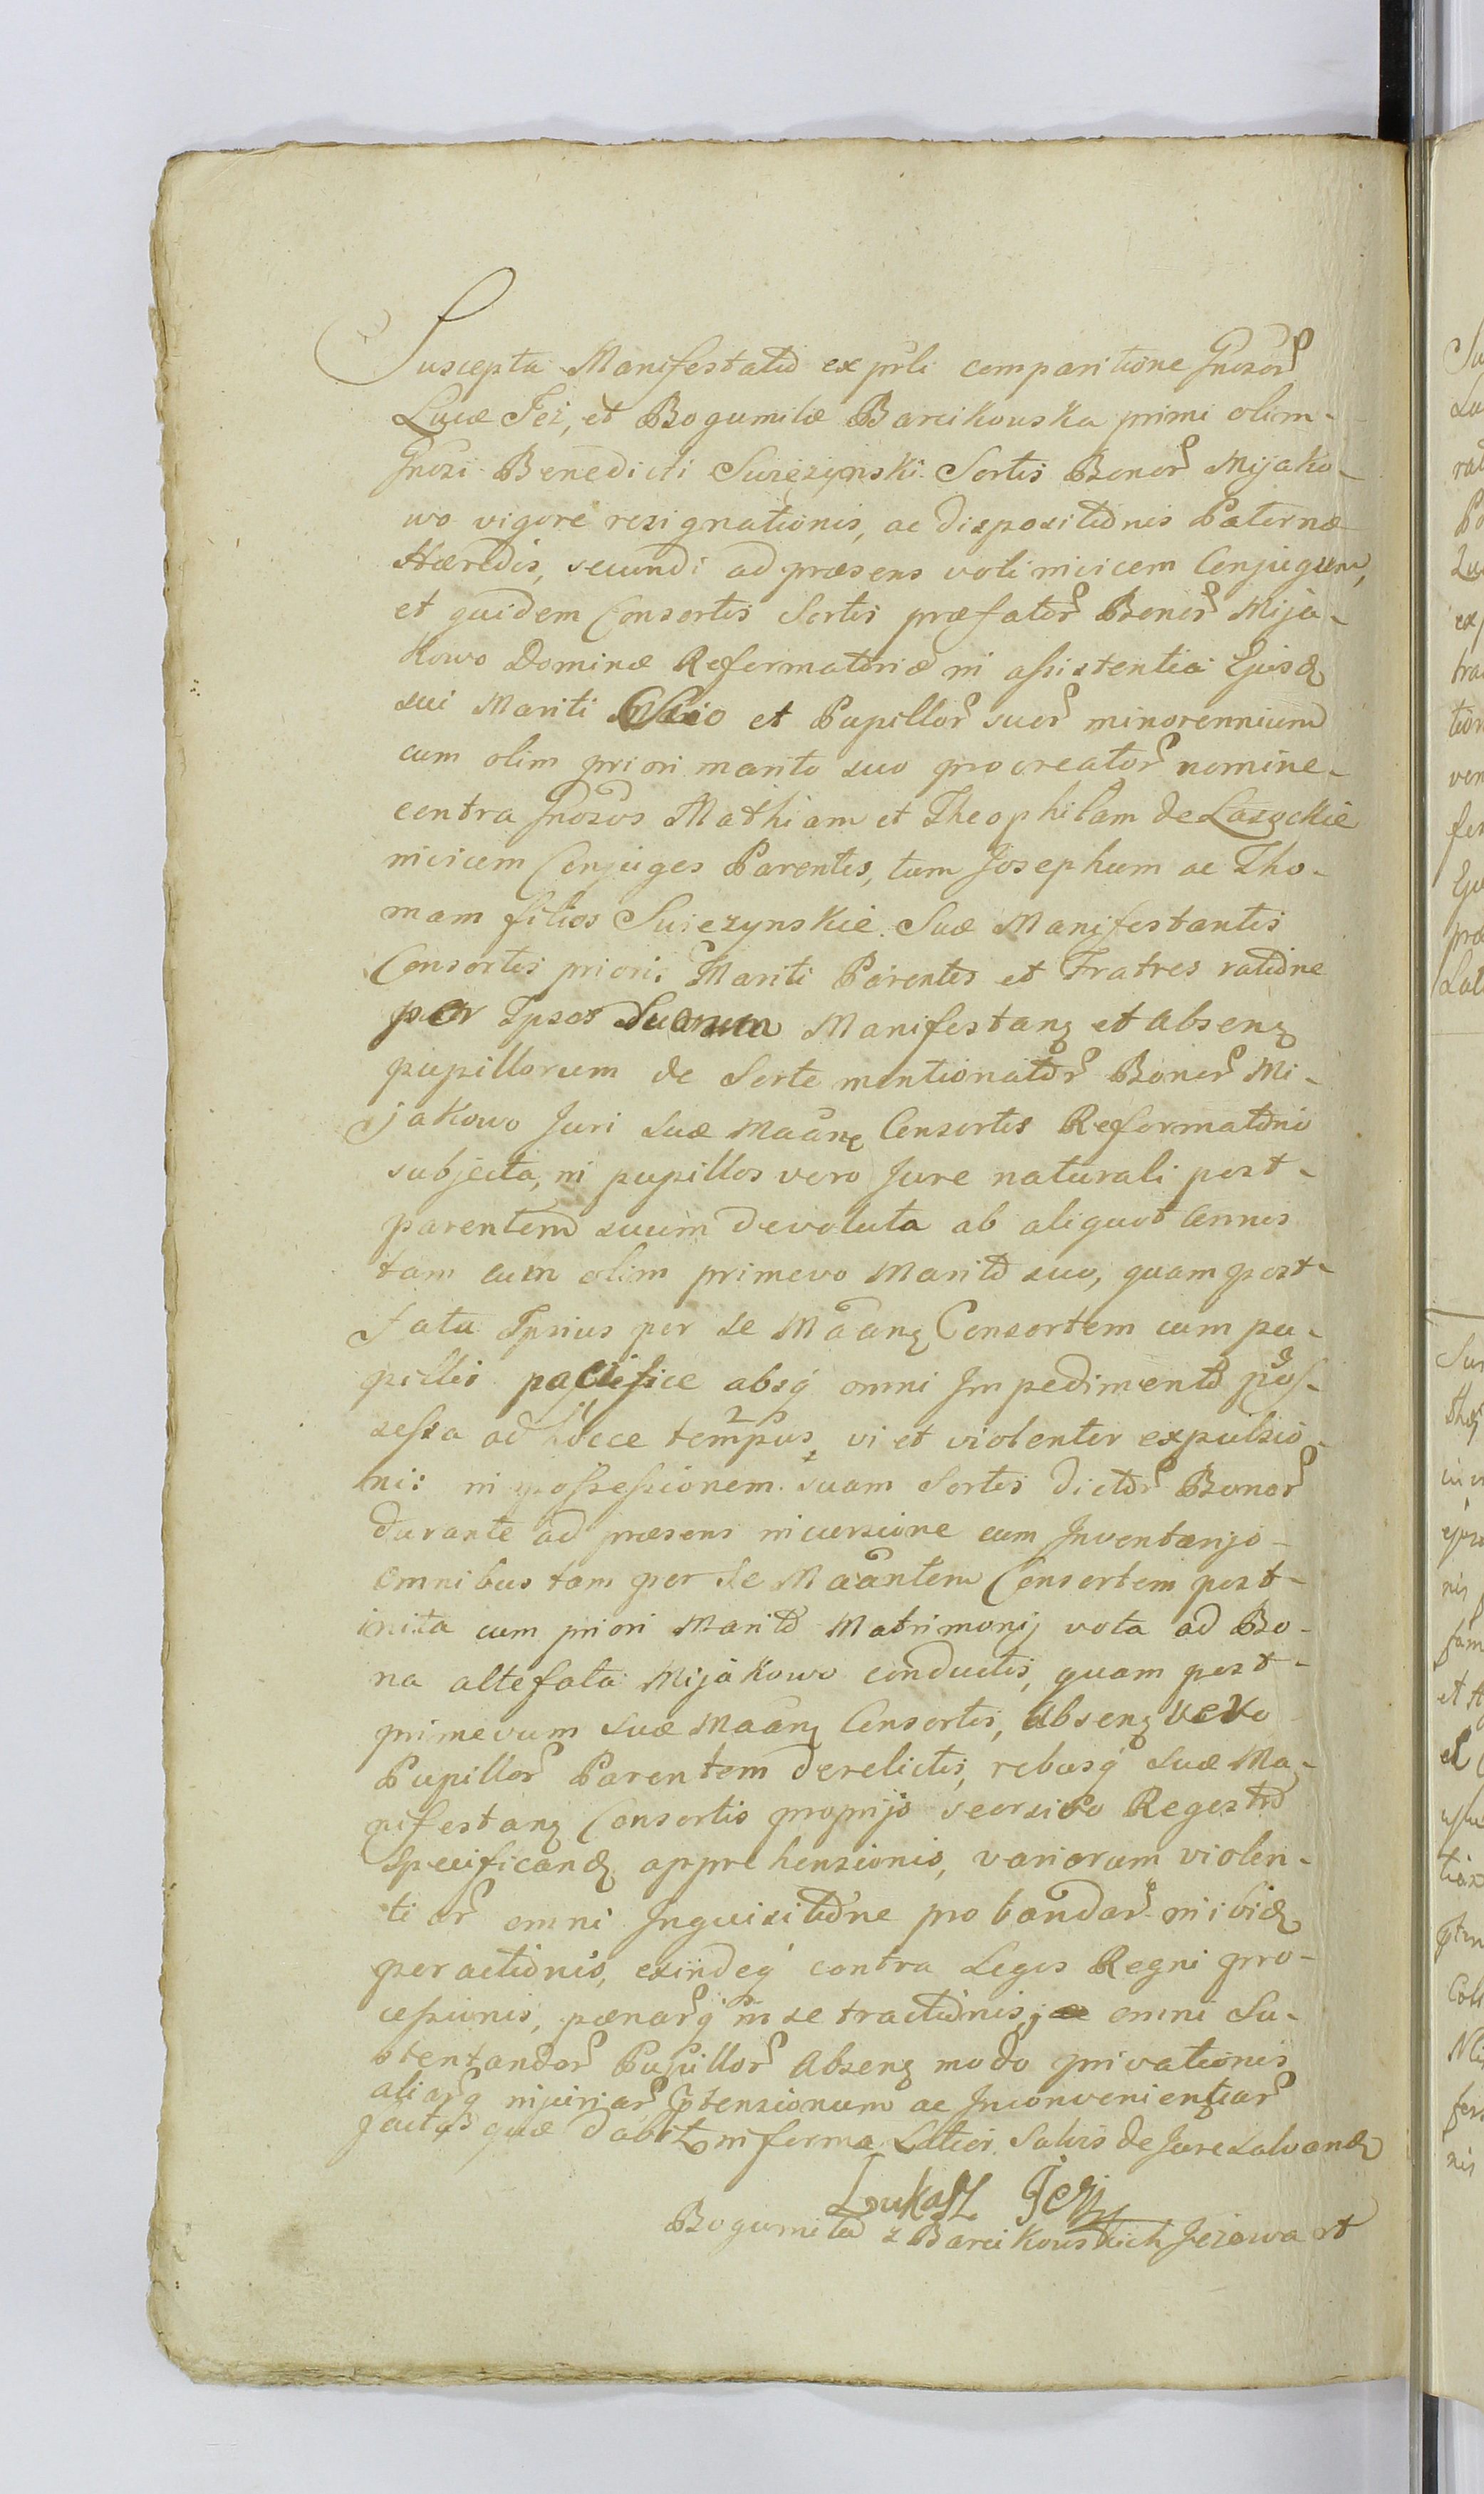 Suscepta Manifestatio ex prli comparitione Gnosor
Lucæ Jez, et Bogumilæ Barcikouska primi olim-
Gnosi Benedicti Suiezynski Sortis Bonor Mijako-
wo vigore resignationis, ac dispositionis Paternæ
Hæredis, secundi ad præsens voti invicem Conjugum,
et quidem Consortis Sortis præfator Bonor Mija-
kowo Dominæ Reformatoriæ in assistentia Ejusd
sui Mariti et Pupillor suor minorennium
cum olim priori marito suo procreator nomine-
contra Gnosos Mathiam et Theophilam de Lasockie
invicem Conjuges Parentes, tum Josephum ac Tho-
mam filios Suiezynskie Suæ Manifestantis
Consortis prioris Mariti Parentes et Fratres ratione
per Ipsos Suarum Manifestanz et absenz
pupillorum de Sorte mentionator Bonor Mi-
jakowo Juri suæ Maanz Consortis Reformatorio
subjecta, in pupillos vero Jure naturali post-
parentem suum devoluta ab aliquot Annis
tam cum olim primevo Marito suo, quam post-
fata Ipsius per se Maanz Consortem cum pu-
pillis pacifice absq omni Impedimento pos-
sessa ad hocce tempus, vi et violenter expulsio-
nis in possessionem suam Sortis dictor Bonor
durante ad præsens incursione cum Inventarijs-
omnibus tam per se Maantem Consortem post-
inita cum priori Marito Matrimonij vota ad Bo-
na altefata Mijakowo conductis, quam post-
primevum suæ Maanz Consortis, absenz vero
Pupillor Parentem derelictis, rebusq suæ Ma-
nifestanz Consortis proprijs seorsivo Regestro
Specificand apprehensionis, variarum violen-
tiar omni Inquisitione probandar inibid
peractionis, exindeq contra Leges Regni pro-
cessionis, pænarq in se tractionis, omni Su-
stentandor Pupillor Absenz modo privationis
aliarq injuriar Ptensionum ac Inconvenientiar
factas quæ dabitr in forma Latiori Salvis de Jure salvand
Łukasz Jeż
Bogumiła z Barcikouskich Jeżowa